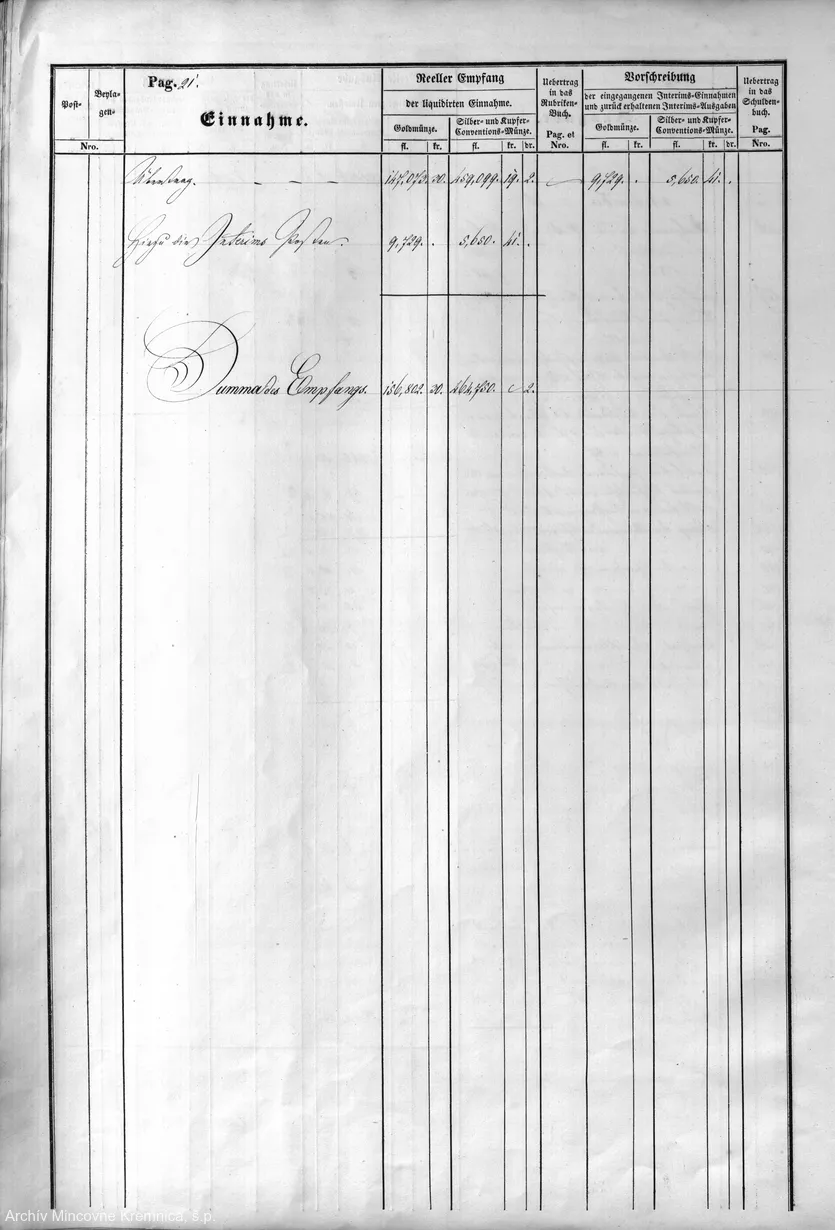 Pag. 21.
Einnahme.
Post-
Beyla-
gen-
Nro.
Reeller Empfang
der liquidirten Einnahme.
Goldmünze.
Silber- und Kupfer-
Conventions-Münze.
fl. kr. fl. kr. dr.
Uebertrag
in das
Rubriken-
Buch.
Pag. et
Nro.
Vorschreibung
der eingegangenen Interims-Einnahmen
und zurück erhaltenen Interims-Ausgaben
Goldmünze.
Silber- und Kupfer-
Conventions-Münze.
fl. kr. fl. kr. dr.
Uebertrag
in das
Schulden-
buch.
Pag.
Nro.
Übertrag. — — — 147,073. 30. 459,099. 19. 2. — 9,729. . 5,650. 41. .
Hiezu die Interims Posten. 9,729. . 5,650. 41. .
Summa des Empfangs. 156,802. 30. 464,750. c 2.
Archív Mincovne Kremnica, š.p.